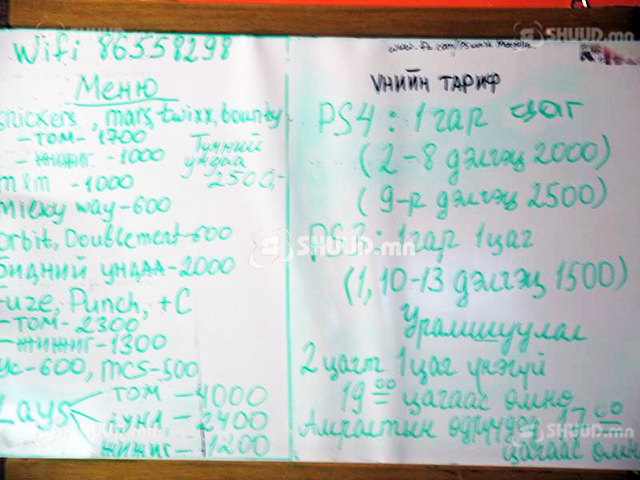 Wifi 86558298
Меню
snickers, mars, twixx, bounty
-том-1700
-жижиг-1000
Түүний ундаа 2500,-
m/m -1000
Milky way-600
Orbit, Doublement-600
Бидний ундаа-2000
Fuze, Punch, +C
-том-2300
-жижиг-1300
ус-600, mcs-500
Lays
том -4000
дунд -2400
жижиг -1200
ҮНИЙН ТАРИФ
PS4: 1 гар цаг
(2-8 дэлгэц 2000)
(9-р дэлгэц 2500)
PS3: 1 гар 1 цаг
(1, 10-13 дэлгэц 1500)
Урамшуулал
2 цагт 1 цаг үнэгүй
19 00 цагаас өмнө
Амралтын өдрүүдэд 17 00
цагаас өмнө
SHUUD.mn
SHUUD.mn
SHUUD.mn
SHUUD.mn
SHUUD.mn